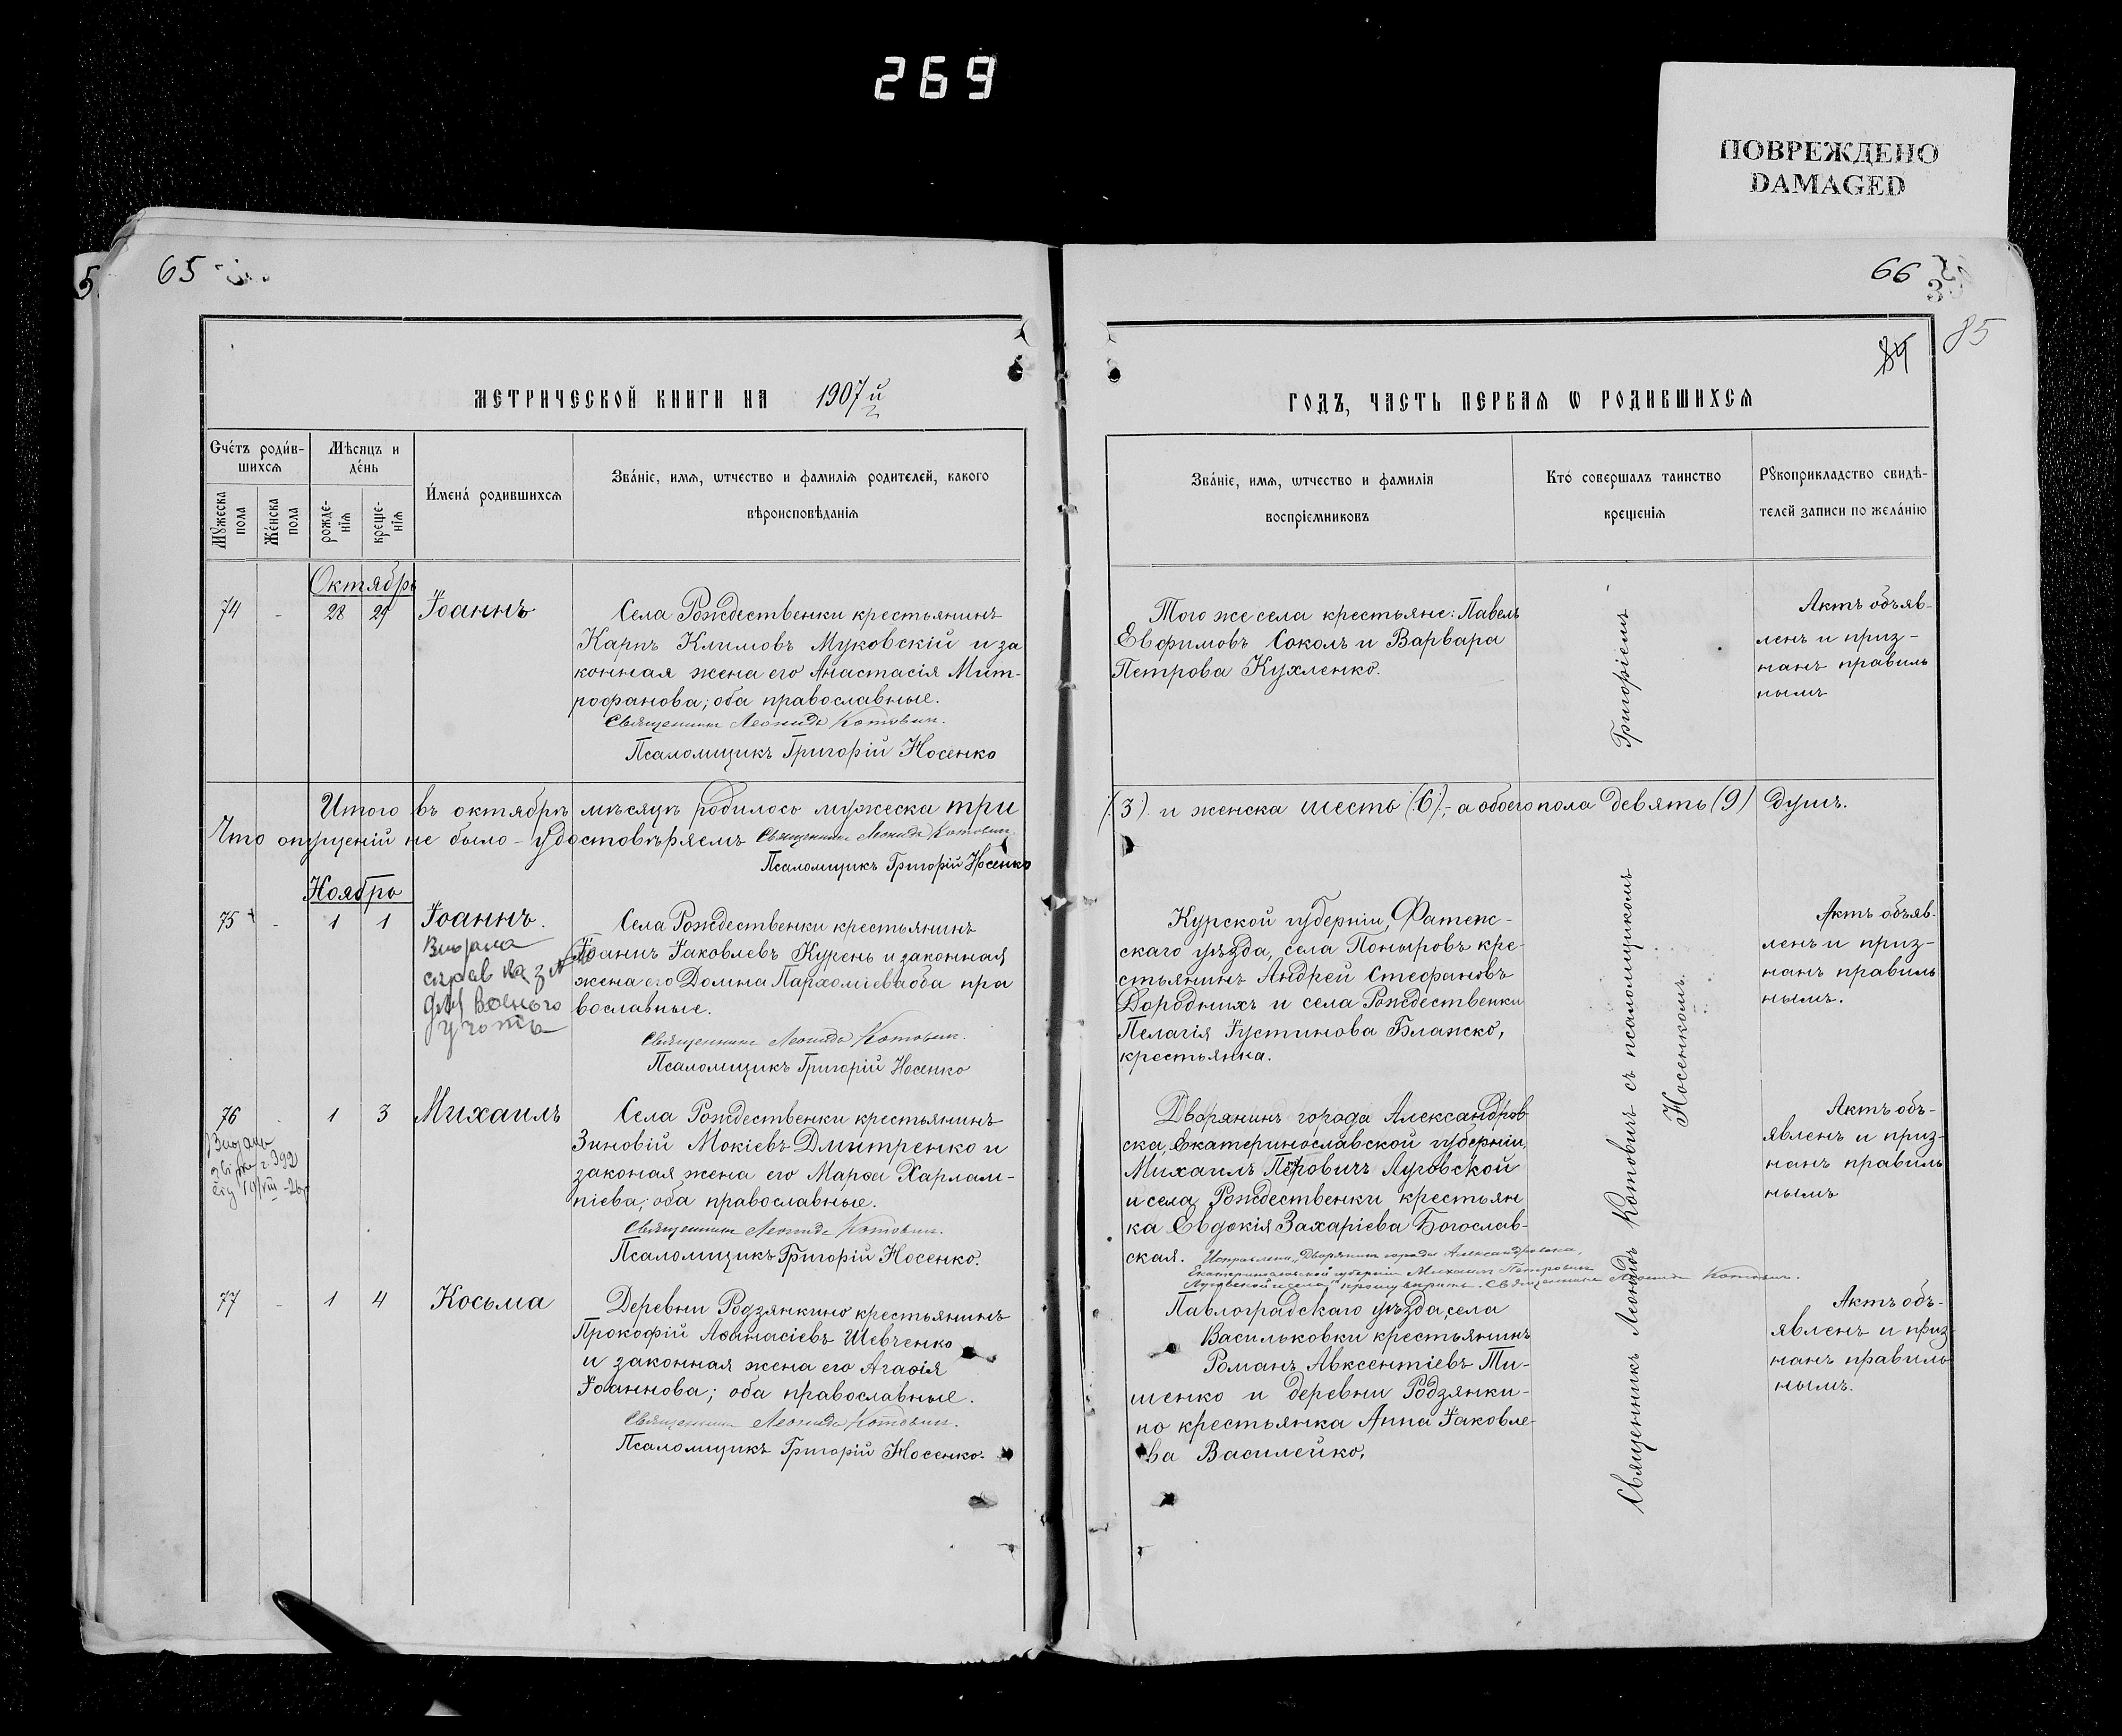 269
ПОВРЕЖДЕНО
DAMAGED
65
66
85
84
МЕТРИЧЕСКОЙ КНИГИ НА 1907й
ГОДЪ, ЧАСТЬ ПЕРВАѦ Ѡ РОДИВШИХСѦ
Счéтъ роди́в-
шихсѧ
Мѣсяцъ и
дéнь
Мꙋжеска пола
Жéнска пола
рожде-
нїѧ
креще-
нїѧ
И́мена́ родившихсѧ
Зва́нїе, имѧ, ѡтчество и фамилїѧ родителей, какого
вѣроисповѣданїѧ
Зва́нїе, имѧ, ѡтчество и фамилїѧ
воспрїемниковъ
Кто́ совершалъ таинство
крещенїѧ
Рꙋкоприкладство свидѣ-
телей записи по жела́нїю
Октябрь
74 - 28 29 Іоаннъ
Села Рождественки крестьянинъ
Карпъ Климовъ Муковскій и за
конная жена его Анастасія Мит-
рофанова; оба православные.
Священникъ Леонидъ Котовичъ.
Псаломщикъ Григорій Носенко
Того же села крестьяне: Павелъ
Евфимовъ Соколъ и Варвара
Петрова Кухленко.
Актъ объяв-
ленъ и приз-
нанъ правиль
нымъ
Итого въ октябрѣ мѣсяцѣ родилось мужеска три (3) и женска шесть (6), а обоего пола девять (9) душъ.
Что опущеній не было - удостовѣряемъ Священникъ Леонидъ Котовичъ.
Псаломщикъ Григорій Носенко
Ноябрь
75 - 1 1 Іоаннъ.
Видана
для военного
Села Рождественки крестьянинъ
Іоаннъ Іаковлевъ Курень и законная
жена его Домна Пархоміева оба пра
вославные.
Священникъ Леонидъ Котовичъ.
Псаломщикъ Григорій Носенко
Курской губерніи, Фатеж-
скаго уѣзда, села Поныровъ кре-
стьянинъ Андрей Стефановъ
Дородныхъ и села Рождественки
Пелагія Іустинова Бланско,
крестьянка.
Актъ объяв-
ленъ и приз-
нанъ правиль
нымъ.
76 1 3 Михаилъ
Села Рождественки крестьянинъ
Зиновій Мокіевъ Дмитренко и
законая жена его Марѳа Харлам-
піева; оба православные.
Священникъ Леонидъ Котовичъ.
Псаломщикъ Григорій Носенко.
Дворянинъ города Александров
ска, Екатеринославской губерніи,
Михаилъ Петровичъ Луговской
и села Рождественки крестьян
ка Евдокія Захаріева Богослав-
ская. Исправлено „Дворянинъ города Александровска,
Екатеринославской губерніи Михаилъ Петровичъ
Луговской и села" прошу вѣрить. Священникъ Леонидъ Котовичъ.
Актъ объ-
явленъ и приз-
нанъ правиль
нымъ
77 - 1 4 Косьма
Деревни Родзянкино крестьянинъ
Прокофій Аѳанасіевъ Шевченко
и законная жена его Агаѳія
Іоаннова; оба православные.
Священникъ Леонидъ Котовичъ.
Псаломщикъ Григорій Носенко.
Павлоградскаго уѣзда, села
Васильковки крестьянинъ
Романъ Авксентіевъ Ти-
шенко и деревни Родзянки-
но крестьянка Анна Іаковле-
ва Василейко,
Актъ объ-
явленъ и приз
нанъ правиль
нымъ.
Священникъ Леонидъ Котовичъ съ псаломщикомъ Григоріемъ
Носенкомъ.